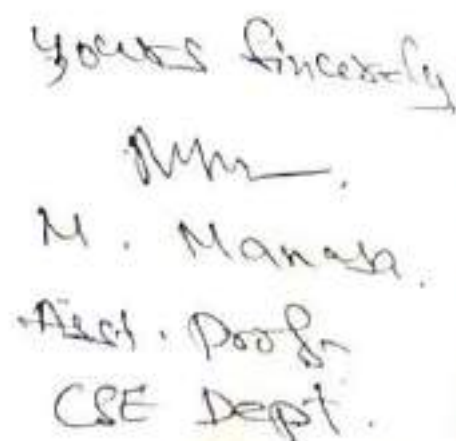 Yours Sincerely
M. Manasa.
Asst. Prof.
CSE Dept.